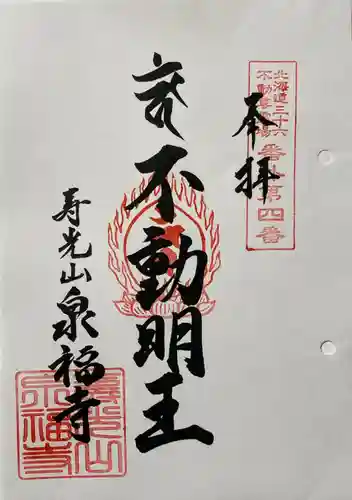 北海道三十六
不動尊霊場
第四番
奉拝
不動明王
寿光山
泉福寺
寿光山
泉福寺